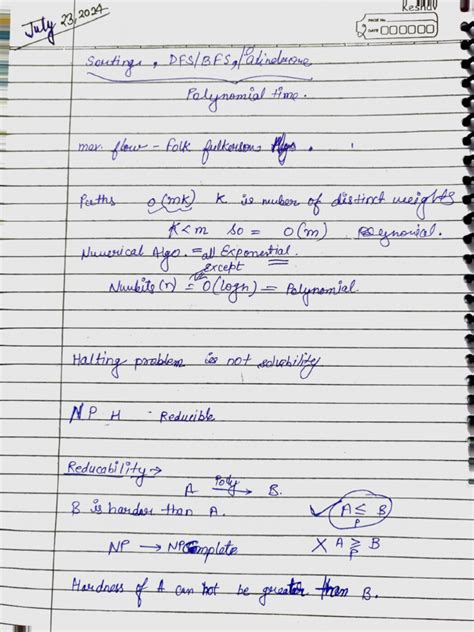 July 23, 2024
Reshav
PAGE No.
DATE
Sorting, DFS/BFS, Palindrome
Polynomial time.
max. flow - Folk fulkerson Algo.
Paths O(mk) K is nuber of distinct weights
K<m so = O(m) Polynomial.
Numerical Algo. = all Exponential.
except
Numbits(n) = O(logn) = Polynomial
Halting problem is not solvability
NP H - Reducible
Reducability →
A Poly→ B.
B is harder than A.
✓ A ≤p B
NP → NP Complete
X A ≥p B
Hardness of A can not be greater than B.